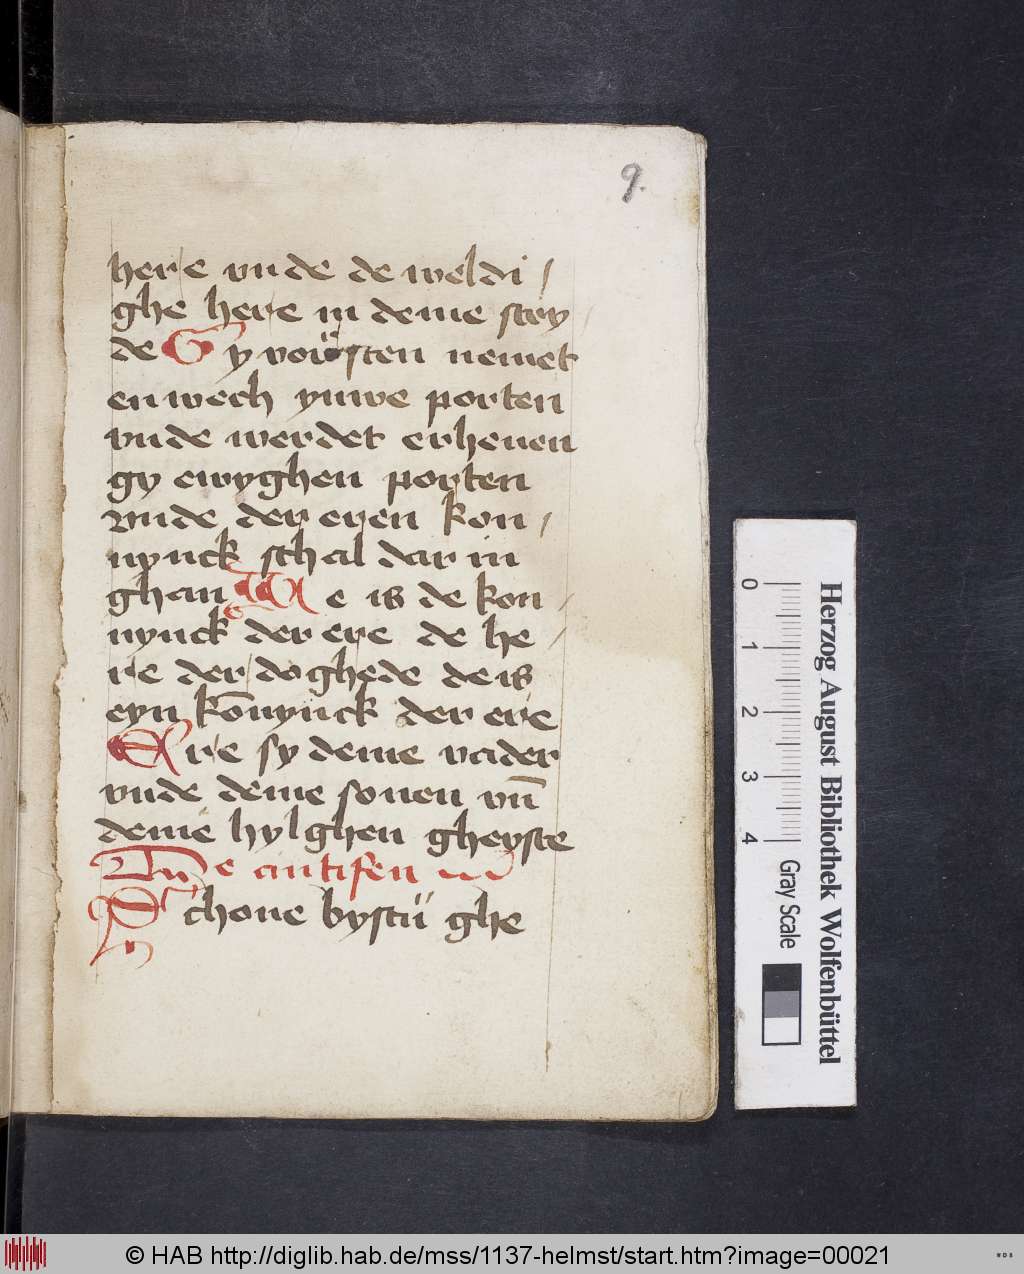 9.
here vnde de weldi /
ghe here in deme stry
de Gy vorsten nemet
en wech yuwe porten
vnde werdet erheuen
gy ewyghen porten
vnde der eren kon /
nynck schal dar in
ghan We is de kon /
nynck der ere de he /
re der doghede de is
eyn kōnynck der ere
Ere sy deme vader
vnde deme sonen vn̄
deme hylghen gheyste
antifen
Schone bystu ghe
0 1 2 3 4
Gray Scale
Herzog August Bibliothek Wolfenbüttel
© HAB http://diglib.hab.de/mss/1137-helmst/start.htm?image=00021